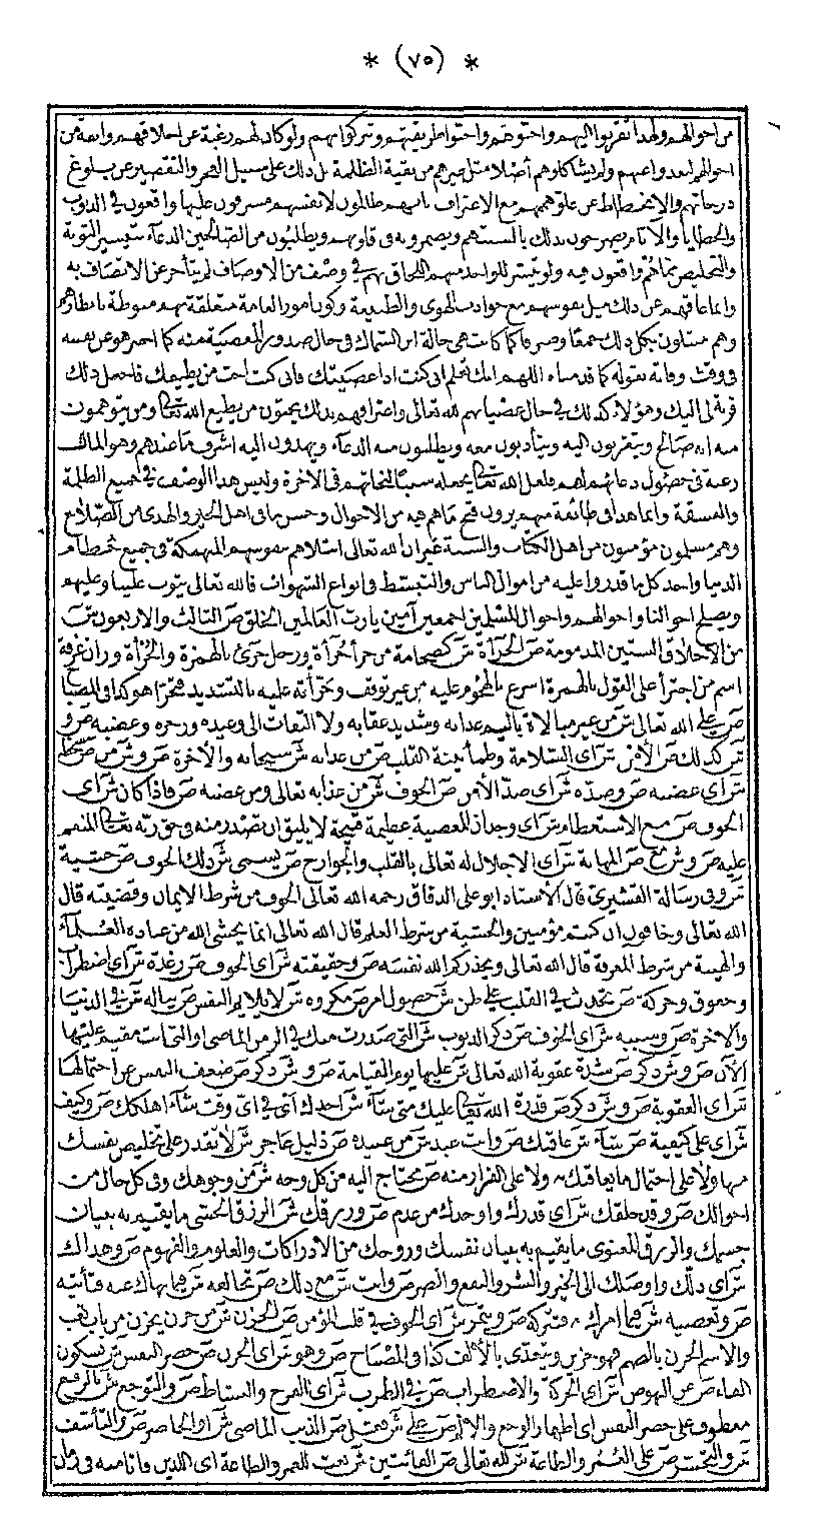 * (٧٥) *
من احوالهم ولهذا تقربوا اليهم واحبوهم واحبوا طريقتهم وتبركوا بهم ولو كان لهم رغبة عن اخلاقهم وانفة من
احوالهم لبعدوا عنهم ولم يشاكلوهم أصلا مثل غيرهم من بقية الظلمة بل ذلك على سبيل العجز والتقصير عن بلوغ
درجاتهم والانحطاط عن علو هممهم مع الاعتراف بانهم ظالمون لانفسهم مسرفون عليها واقعون في الذنوب
والخطايا والآثام يصرحون بذلك بالسنتهم ويضمرونه في قلوبهم ويطلبون من الصالحين الدعاء بتيسير التوبة
والتخليص مما هم واقعون فيه ولو تيسر للواحد منهم اللحاق بهم في وصف من الاوصاف لم يتأخر عن الاتصاف به
وانما عاقهم عن ذلك ميل نفوسهم مع جواذب الهوى والطبيعة وكون امور العامة متعلقة بهم منوطة بانظارهم
وهم مبتلون بكل ذلك جمعا وصرفا كما كانت هي حالة ابن السماك في حال صدور المعصية منه كما اخبر هو عن نفسه
في وقت وفاته بقوله كما قدمناه اللهم انك تعلم اني كنت اذا عصيتك فاني كنت احب من يطيعك فاجعل ذلك
قربة لي اليك وهؤلاء كذلك في حال عصيانهم لله تعالى واعترافهم بذلك يحبون من يطيع الله تعالى ومن يتوهمون
منه انه صالح ويتقربون اليه ويتأدبون معه ويطلبون منه الدعاء ويهدون اليه اشرف ما عندهم وهو المال
رغبة في حصول دعائهم لهم فلعل الله تعالى يجعله سببا لنجاتهم في الآخرة وليس هذا الوصف في جميع الظلمة
والفسقة وانما هذا في طائفة منهم يرون قبح ما هم فيه من الاحوال وحسن ما في اهل الخير والهدى من الصلاح
وهم مسلمون مؤمنون من اهل الكتاب والسنة غير ان الله تعالى ابتلاهم بنفوسهم المنهمكة في جميع حطام
الدنيا واخذ كل ما قدروا عليه من اموال الناس والتبسط في انواع الشهوات فالله تعالى يتوب علينا وعليهم
ويصلح احوالنا واحوالهم واحوال المسلمين اجمعين آمين يا رب العالمين الخلق ص الثالث والاربعون ش
من الاخلاق الستين المذمومة ص الجرأة ش كضخامة من جرأ جرأة ورجل جرئ بالهمزة والجرأة وزان غرفة
اسم من اجترأ على القول بالهمزة اسرع بالهجوم عليه من غير توقف وجرأته عليه بالتشديد فتجرأ هو كذا في المصباح
ص على الله تعالى ش من غير مبالاة بأليم عذابه وشديد عقابه ولا التفات الى وعيده وزجره وغضبه ص و
ش كذلك ص الأمن ش أي السلامة وطمأنينة القلب ص من عذابه ش سبحانه والآخرة ص و ش من ص سخطه
ش أي غضبه ص وضده ش أي ضد الأمن ص الخوف ش من عذابه تعالى ومن غضبه ص فاذا كان ش أي
الخوف ص مع الاستعظام ش أي وجدان المعصية عظيمة قبيحة لا يليق ان تصدر منه في حق ربه تعالى المنعم
عليه ص و ش مع ص المهابة ش أي الاجلال له تعالى بالقلب والجوارح ص يسمى ش ذلك الخوف ص خشية
ش وفي رسالة القشيري قال الأستاذ ابو علي الدقاق رحمه الله تعالى الخوف من شرط الايمان وقضيته قال
الله تعالى وخافون ان كنتم مؤمنين والخشية من شرط العلم قال الله تعالى انما يخشى الله من عباده العلماء
والهيبة من شرط المعرفة قال الله تعالى ويحذركم الله نفسه ص وحقيقته ش أي الخوف ص رعدة ش أي اضطراب
وخفوق وحركة ص تحدث في القلب على ظن ش حصول امر ص مكروه ش لا يلايم النفس ص يناله ش في الدنيا
والآخرة ص وسببه ش أي الخوف ص ذكر الذنوب ش التي صدرت منك في الزمن الماضي او التي انت مقيم عليها
الآن ص و ش ذكر ص شدة عقوبة الله تعالى ش عليها يوم القيامة ص و ش ذكر ص ضعف النفس عن احتمالها
ش أي العقوبة ص و ش ذكر ص قدرة الله تعالى عليك متى شاء ش اخذك أي في اي وقت شاء اهلكك ص وكيف
ش أي على كيفية ص شاء ش عاقبك ص وانت عبد ش من عبيده ص ذليل عاجز ش لا تقدر على تخليص نفسك
منها ولا على احتمال ما يعاقبك به ولا على الفرار منه ص محتاج اليه من كل وجه ش من وجوهك وفي كل حال من
احوالك ص وقد خلقك ش أي قدرك واوجدك من عدم ص ورزقك ش الرزق الحسي ما يقيم به بنيان
جسمك والرزق المعنوي ما يقيم به بنيان نفسك وروحك من الادراكات والعلوم والفهوم ص وهداك
ش أي دلك واوصلك الى الخير والشر والنفع والضر ص وانت ش مع ذلك ص تخالفه ش فيما نهاك عنه فتأتيه
ص وتعصيه ش فيما امرك به فتتركه ص ويثمر ش أي الخوف في قلب المؤمن ص الحزن ش من حزن يحزن من باب تعب
والاسم الحزن بالضم فهو حزين ويتعدى بالألف كذا في المصباح ص وهو ش أي الحزن ص حصر النفس ش بسكون
الفاء ص عن النهوض ش أي الحركة والاضطراب ص في الطرب ش أي الفرح والنشاط ص والتوجع ش بالرفع
معطوف على حصر النفس اي اظهار الوجع والالم ص على ش فعل ص الذنب الماضي ش او الحاضر ص والتأسف
ش والتحسر ص على العمر والطاعة ش لله تعالى ص الفائتين ش نعت للعمر والطاعة اي اللذين فاتا منه في زمان